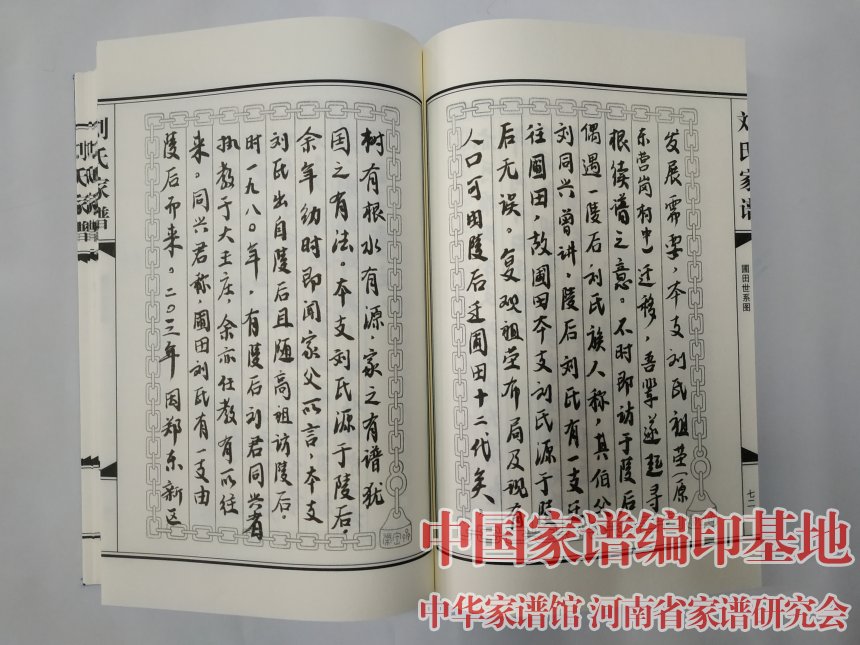 刘氏家谱
树有根水有源,家之有谱犹
国之有法。本支刘氏源于陵后。
余年幼时即闻家父所言,本支
刘氏出自陵后且随高祖访陵后。
时一九八〇年,有陵后刘君同兴者
执教于大王庄,余亦任教有所往
来。同兴君称,圃田刘氏有一支由
陵后而来。二〇三年因郑东新区
刘氏家谱
圃田世系图
发展需要,本支刘氏祖茔(原
东营岗村中)迁移,吾辈遂起寻
根续谱之意。不时即访于陵后
偶遇一陵后刘氏族人称,其伯父
刘同兴曾讲,陵后刘氏有一支迁
往圃田,故圃田本支刘氏源于陵
后无误。复观祖茔布局及现有
人口可由陵后迁圃田十二代矣
中国家谱编印基地
中华家谱馆 河南省家谱研究会